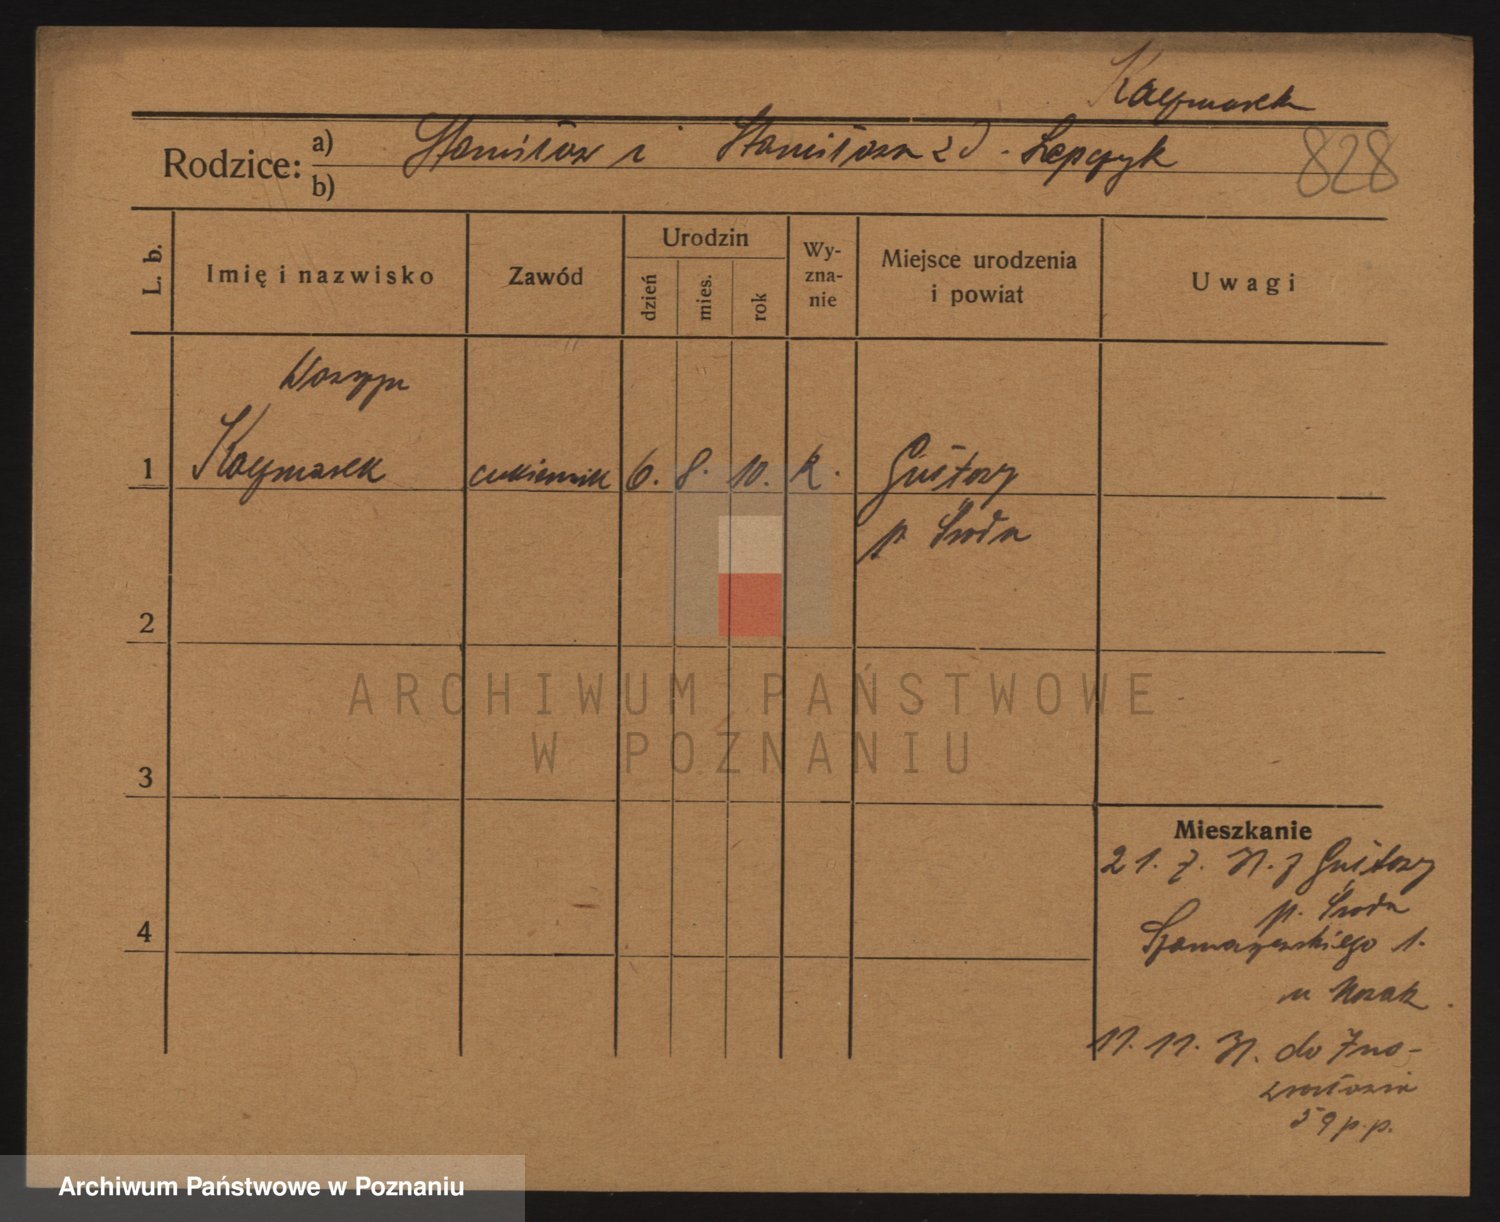 Kaczmarek
Rodzice: a) Stanisław i Stanisława zd. Szepczyk
b)
828
L. b.
Imię i nazwisko
Zawód
Urodzin
dzień
mies.
rok
Wy-
zna-
nie
Miejsce urodzenia
i powiat
Uwagi
1
Kaczmarek
cukiernik
6. 8. 10. k.
Gułtowy
p. Środa
2
3
4
ARCHIWUM PAŃSTWOWE
W POZNANIU
Mieszkanie
21. 7. 31. z Gułtowy
p. Środa
Szamarzewskiego 1.
u Nowak.
11. 11. 31. do Ino-
wrocławia
59 p. p.
Archiwum Państwowe w Poznaniu